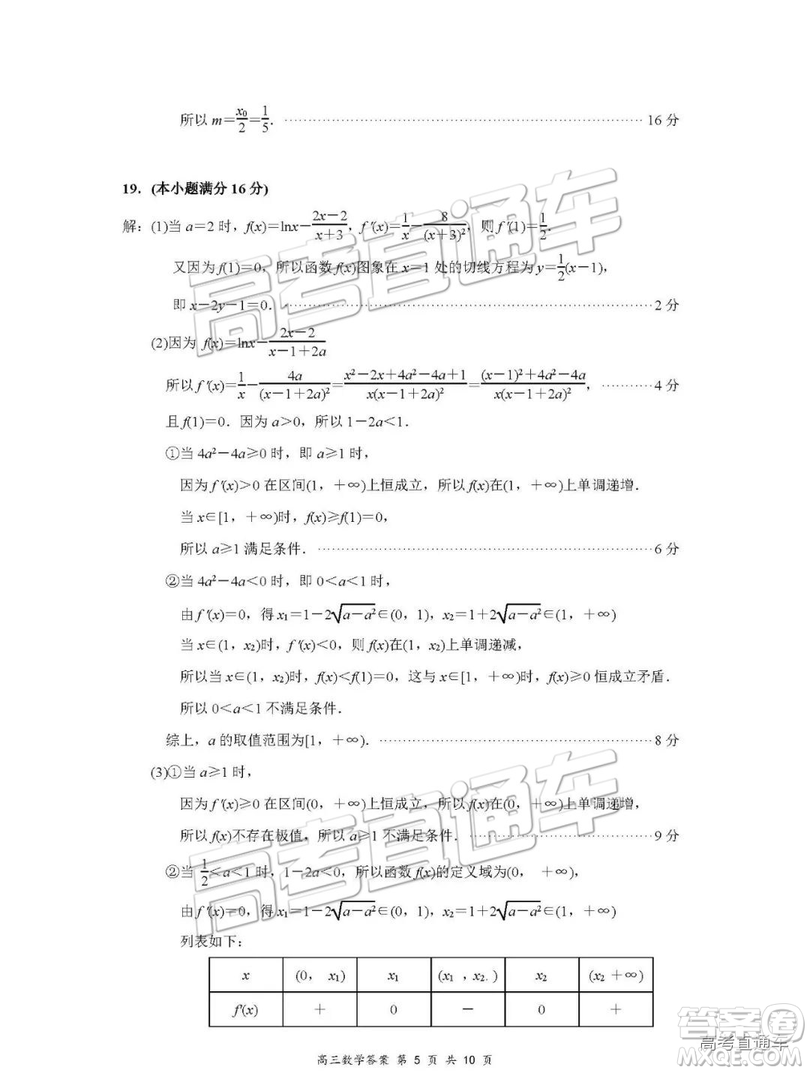 所以 m＝x₀/2＝1/5． 16 分
19．(本小题满分 16 分)
解：(1)当 a＝2 时，f(x)＝lnx－(2x－2)/(x＋3)，f ′(x)＝1/x－8/(x＋3)²，则 f ′(1)＝1/2．
又因为 f(1)＝0，所以函数 f(x)图象在 x＝1 处的切线方程为 y＝1/2(x－1)，
即 x－2y－1＝0． 2 分
(2)因为 f(x)＝lnx－(2x－2)/(x－1＋2a)
所以 f ′(x)＝1/x－4a/(x－1＋2a)²＝(x²－2x＋4a²－4a＋1)/(x(x－1＋2a)²)＝((x－1)²＋4a²－4a)/(x(x－1＋2a)²)， 4 分
且 f(1)＝0．因为 a＞0，所以 1－2a＜1．
①当 4a²－4a≥0 时，即 a≥1 时，
因为 f ′(x)＞0 在区间(1，＋∞)上恒成立，所以 f(x)在(1，＋∞)上单调递增．
当 x∈[1，＋∞)时，f(x)≥f(1)＝0，
所以 a≥1 满足条件． 6 分
②当 4a²－4a＜0 时，即 0＜a＜1 时，
由 f ′(x)＝0，得 x₁＝1－2√(a－a²)∈(0，1)，x₂＝1＋2√(a－a²)∈(1，＋∞)
当 x∈(1，x₂)时，f ′(x)＜0，则 f(x)在(1，x₂)上单调递减，
所以当 x∈(1，x₂)时，f(x)＜f(1)＝0，这与 x∈[1，＋∞)时，f(x)≥0 恒成立矛盾．
所以 0＜a＜1 不满足条件．
综上，a 的取值范围为[1，＋∞)． 8 分
(3)①当 a≥1 时，
因为 f ′(x)≥0 在区间(0，＋∞)上恒成立，所以 f(x)在(0，＋∞)上单调递增，
所以 f(x)不存在极值，所以 a≥1 不满足条件． 9 分
②当 1/2＜a＜1 时，1－2a＜0，所以函数 f(x)的定义域为(0，＋∞)，
由 f ′(x)＝0，得 x₁＝1－2√(a－a²)∈(0，1)，x₂＝1＋2√(a－a²)∈(1，＋∞)
列表如下：
x (0，x₁) x₁ (x₁，x₂．) x₂ (x₂ ＋∞)
f′(x) ＋ 0 － 0 ＋
高三数学答案 第 5 页 共 10 页
高考直通车
高考直通车
答案圈
高考直通车